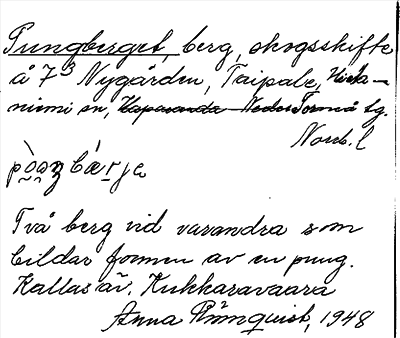 Pungberget, berg, skogsskifte
å 7³ Nygården, Taipale, Hieta-
niemi sn, Haparanda-Neder Torneå tg.
Norrb. l
Två berg vid varandra som
bildar formen av en pung.
Kallas äv. Kukkaravaara
Anna Rönnquist, 1948